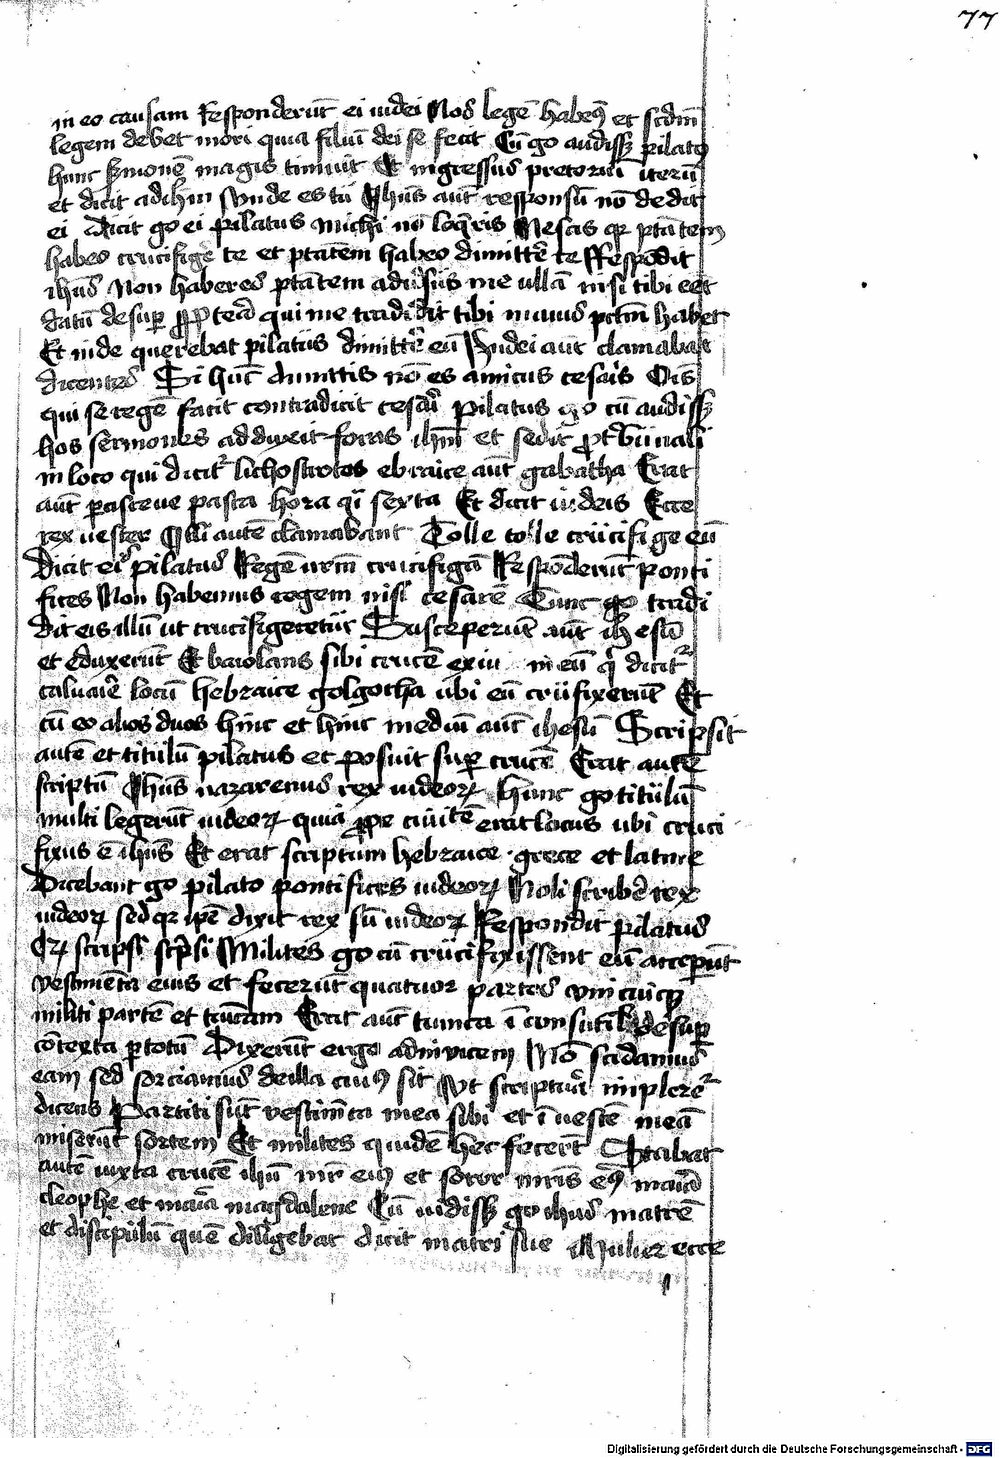 77
in eo causam Responderūt ei iudei Nos legē habem9 et scdm̄
legem debet mori quia filiū dei se fecit Cū go audiss3 pilato
hunc smonē magis timuit Et ingressus pretoriū iterū
et dicit ad ihm Vnde es tu Ihūs aut̄ responsū nō dedit
ei Dicit go ei pilatus michi nō loq̄ris Nescis qr ptātem
habeo crucifigē te et ptātem habeo dimittē te Respōdit
ihūs Non haberes ptātem adūsus me ullā nisi tibi eēt
datū desup ꝓpterea qui me tradidit tibi maius pctm̄ habet
Et inde querebat pilatus dimittē eū Iudei aut̄ clamabāt
dicentes Si hūc dimittis nō es amicus cesaris Oīs
qui se regē facit contradicit cesari Pilatus go cū audiss3
hos sermones adduxit foras ihm̄ et sedit ꝓ tbūnali
in loco qui dicit᷑ lichostrotos ebraice aut̄ gabatha Erat
aut̄ pasceue pasca hora qi sexta Et dicit iudeis Ecce
rex uester Illi autē clamabant Tolle tolle crucifige eū
Dicit eis pilatus Regē urm̄ crucifigā Respōderūt Ponti
fices Non habemus regem nisi cesarē Tunc go tradi
dit eis illū ut crucifigeretur Susceperūt aut̄ ihesū
et eduxerūt Et baiolans sibi crucē exiu in eū q dicit᷑
caluaīe locū hebraice golgotha ubi eū crūfixerūt Et
cū eo alios duos hinc et hinc mediū aut̄ ihesū Scripsit
autē et titulū pilatus et posuit sup crucē Erat autē
scriptū Ihūs nazarenus rex iudeoꝝ hunc go titulū
multi legerūt iudeoꝝ quia ꝓpe ciuitē erat locus ubi cruci
fixus ē ihūs Et erat scriptum hebraice grece et latine
Dicebant go pilato pontifices iudeoꝝ Noli scribē rex
iudeoꝝ sed qr ipē dixit rex sū iudeoꝝ Respondit pilatus
Qꝝ scripsi scpsi Milites go cū crucifixissent eū acceperūt
vestimēta eius et fecerūt quatuor partes vnicuiq3
militi partē et tunicam Erat aut̄ tunica īconsutil desup
cōtexta p totū Dixerūt ergo adinuicem Nō scidamus
eam sed sorciamus de illa cui9 sit Vt scriptura implere᷑
dicens Partiti sūt vestim̄ta mea sibi et ī uestē meā
miserūt sortem Et milites quidē hec fecert̄ Stabat
autē iuxta crucē ihū mr̄ ei9 et soror mr̄is ei9 maria
cleophe et maia magdalene Cū uidiss3 go ihūs matrē
et discipulū quē diligebat dicit matri sue Mulier ecce
Digitalisierung gefördert durch die Deutsche Forschungsgemeinschaft - DFG